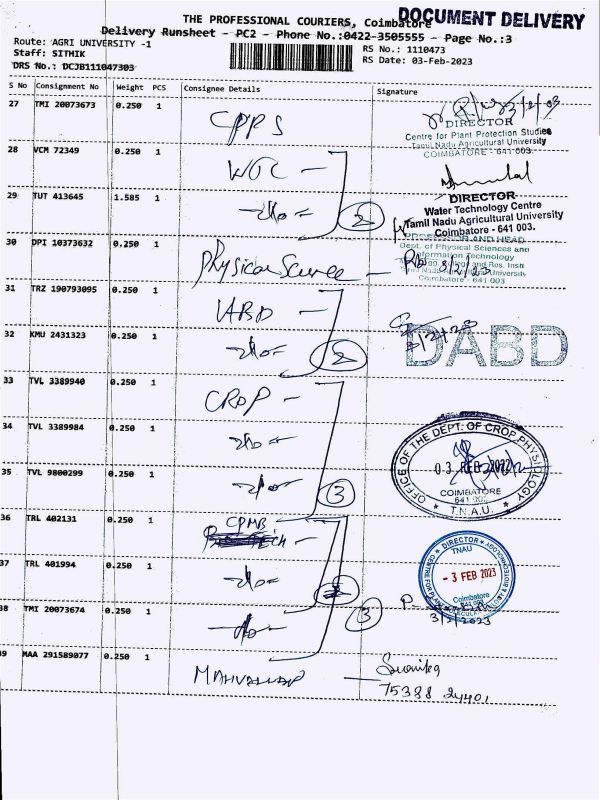 DOCUMENT DELIVERY
THE PROFESSIONAL COURIERS, Coimbatore
Delivery Runsheet - PC2 - Phone No.:0422-3505555 - Page No.:3
Route: AGRI UNIVERSITY -1
RS No.: 1110473
Staff: SITHIK
RS Date: 03-Feb-2023
DRS No.: DCJB111047303
S No Consignment No Weight PCS Consignee Details Signature
27 TMI 20073673 0.250 1 CPPS
3/2/23
DIRECTOR
Centre for Plant Protection Studies
Tamil Nadu Agricultural University
COIMBATORE - 641 003.
28 VCM 72349 0.250 1 WTC
29 TUT 413645 1.585 1 -do- 2
DIRECTOR
Water Technology Centre
Tamil Nadu Agricultural University
Coimbatore - 641 003.
30 DPI 10373632 0.250 1 Physical Science
PROFESSOR AND HEAD
Dept. of Physical Sciences and
Information Technology
Coimbatore - 641 003
3/2/23
31 TRZ 190793095 0.250 1 DABD
32 KMU 2431323 0.250 1 -do- 2
DABD
33 TVL 3389940 0.250 1 CROP
34 TVL 3389984 0.250 1 -do-
35 TVL 9800299 0.250 1 -do- 3
OFFICE OF THE DEPT. OF CROP PHYSIOLOGY
03 FEB
COIMBATORE
641 003
T.N.A.U.
36 TRL 402131 0.250 1 CPMB
37 TRL 401994 0.250 1 -do-
38 TMI 20073674 0.250 1 -do- 3
DIRECTOR
TNAU
- 3 FEB 2023
Coimbatore
3/2/2023
39 MAA 291589077 0.250 1
75388 24401